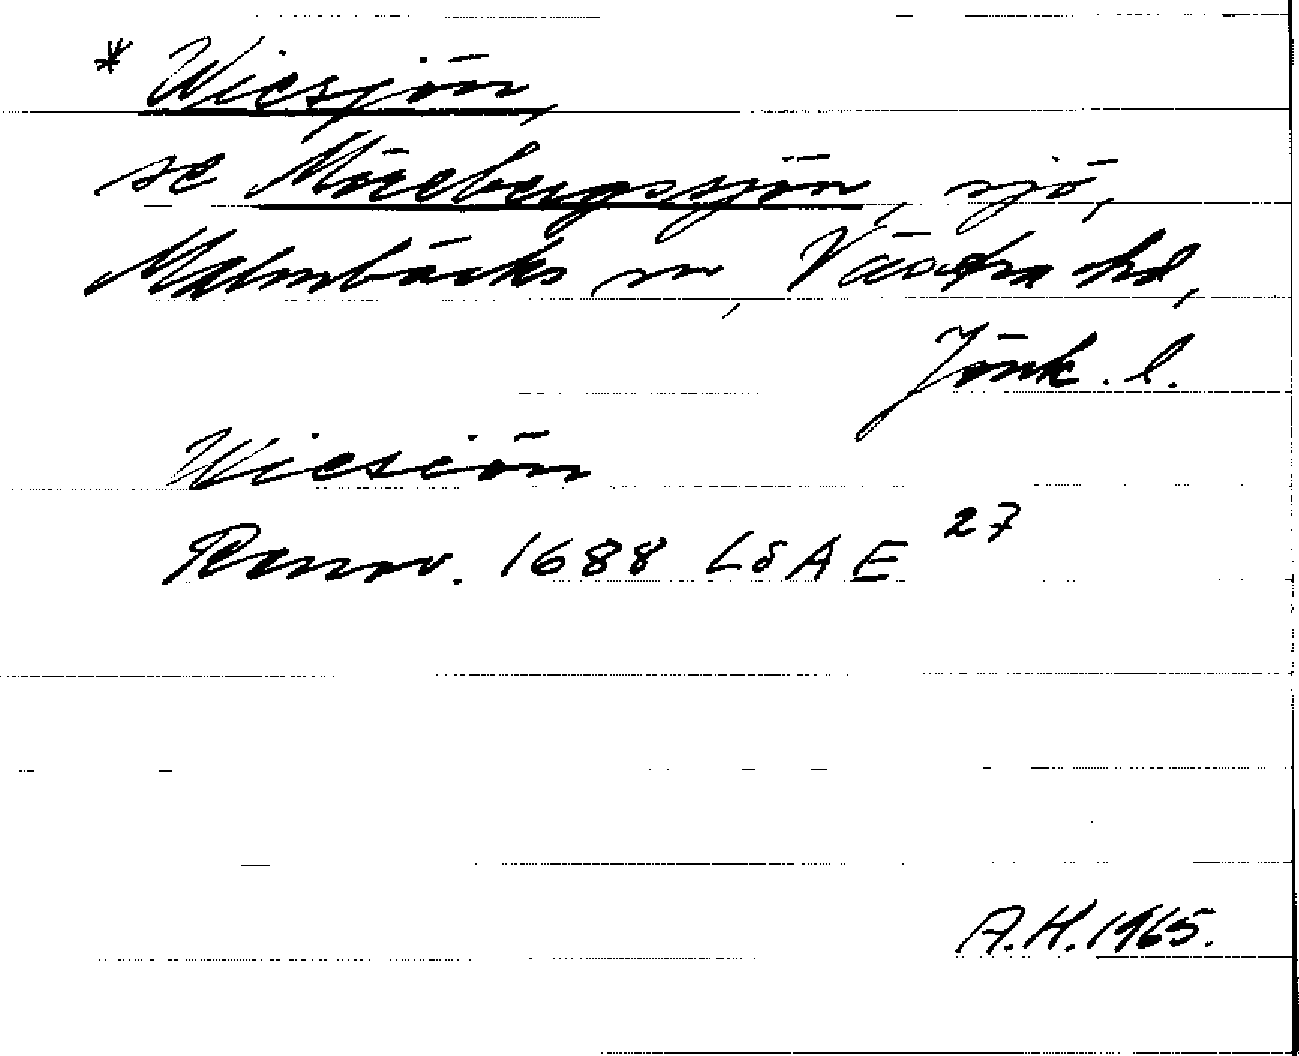 * Wicsjön,
se Möcebergssjön, sjö,
Malmbäcks sn, Västra hd,
Jönk. l.
Wicsiön
Rannv. 1688 LSA E 27
A.H. 1965.